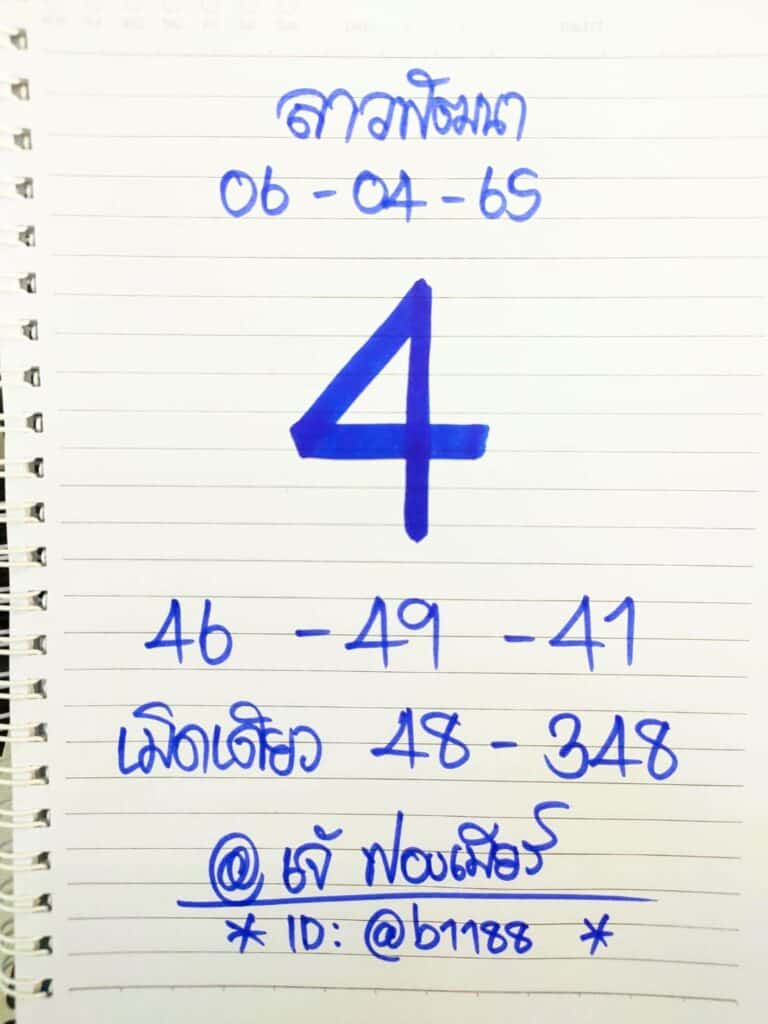 ลาวพัฒนา
06 - 04 - 65
4
46 - 49 - 41
เม็ดเดียว 48 - 348
@ เจ๊ ฟองเบียร์
* ID: @b1188 *